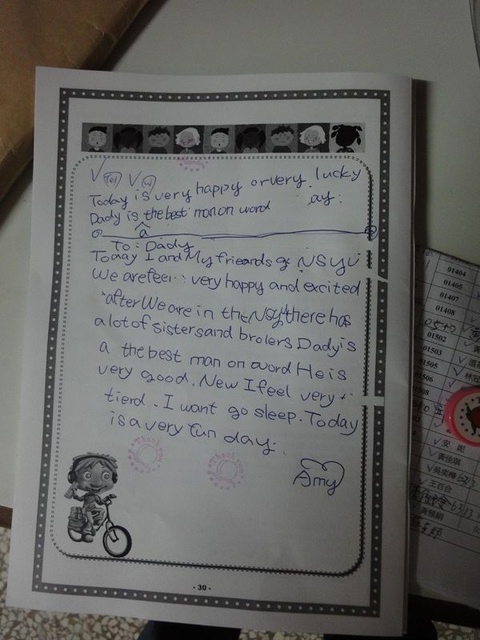 Today is very happy or very lucky
Dady is the best man on word ay.
a
To: Dady
Today I and My frieands go NSYU
We are feer very happy and excited
after We are in the NSY there has
a lot of sisters and brolers Dady is
a the best man on word He is
very good. New I feel very
tierd. I want go sleep. Today
is a very fun day.
Amy
- 30 -
01404
01405
01407
01408
01502
01503
01505